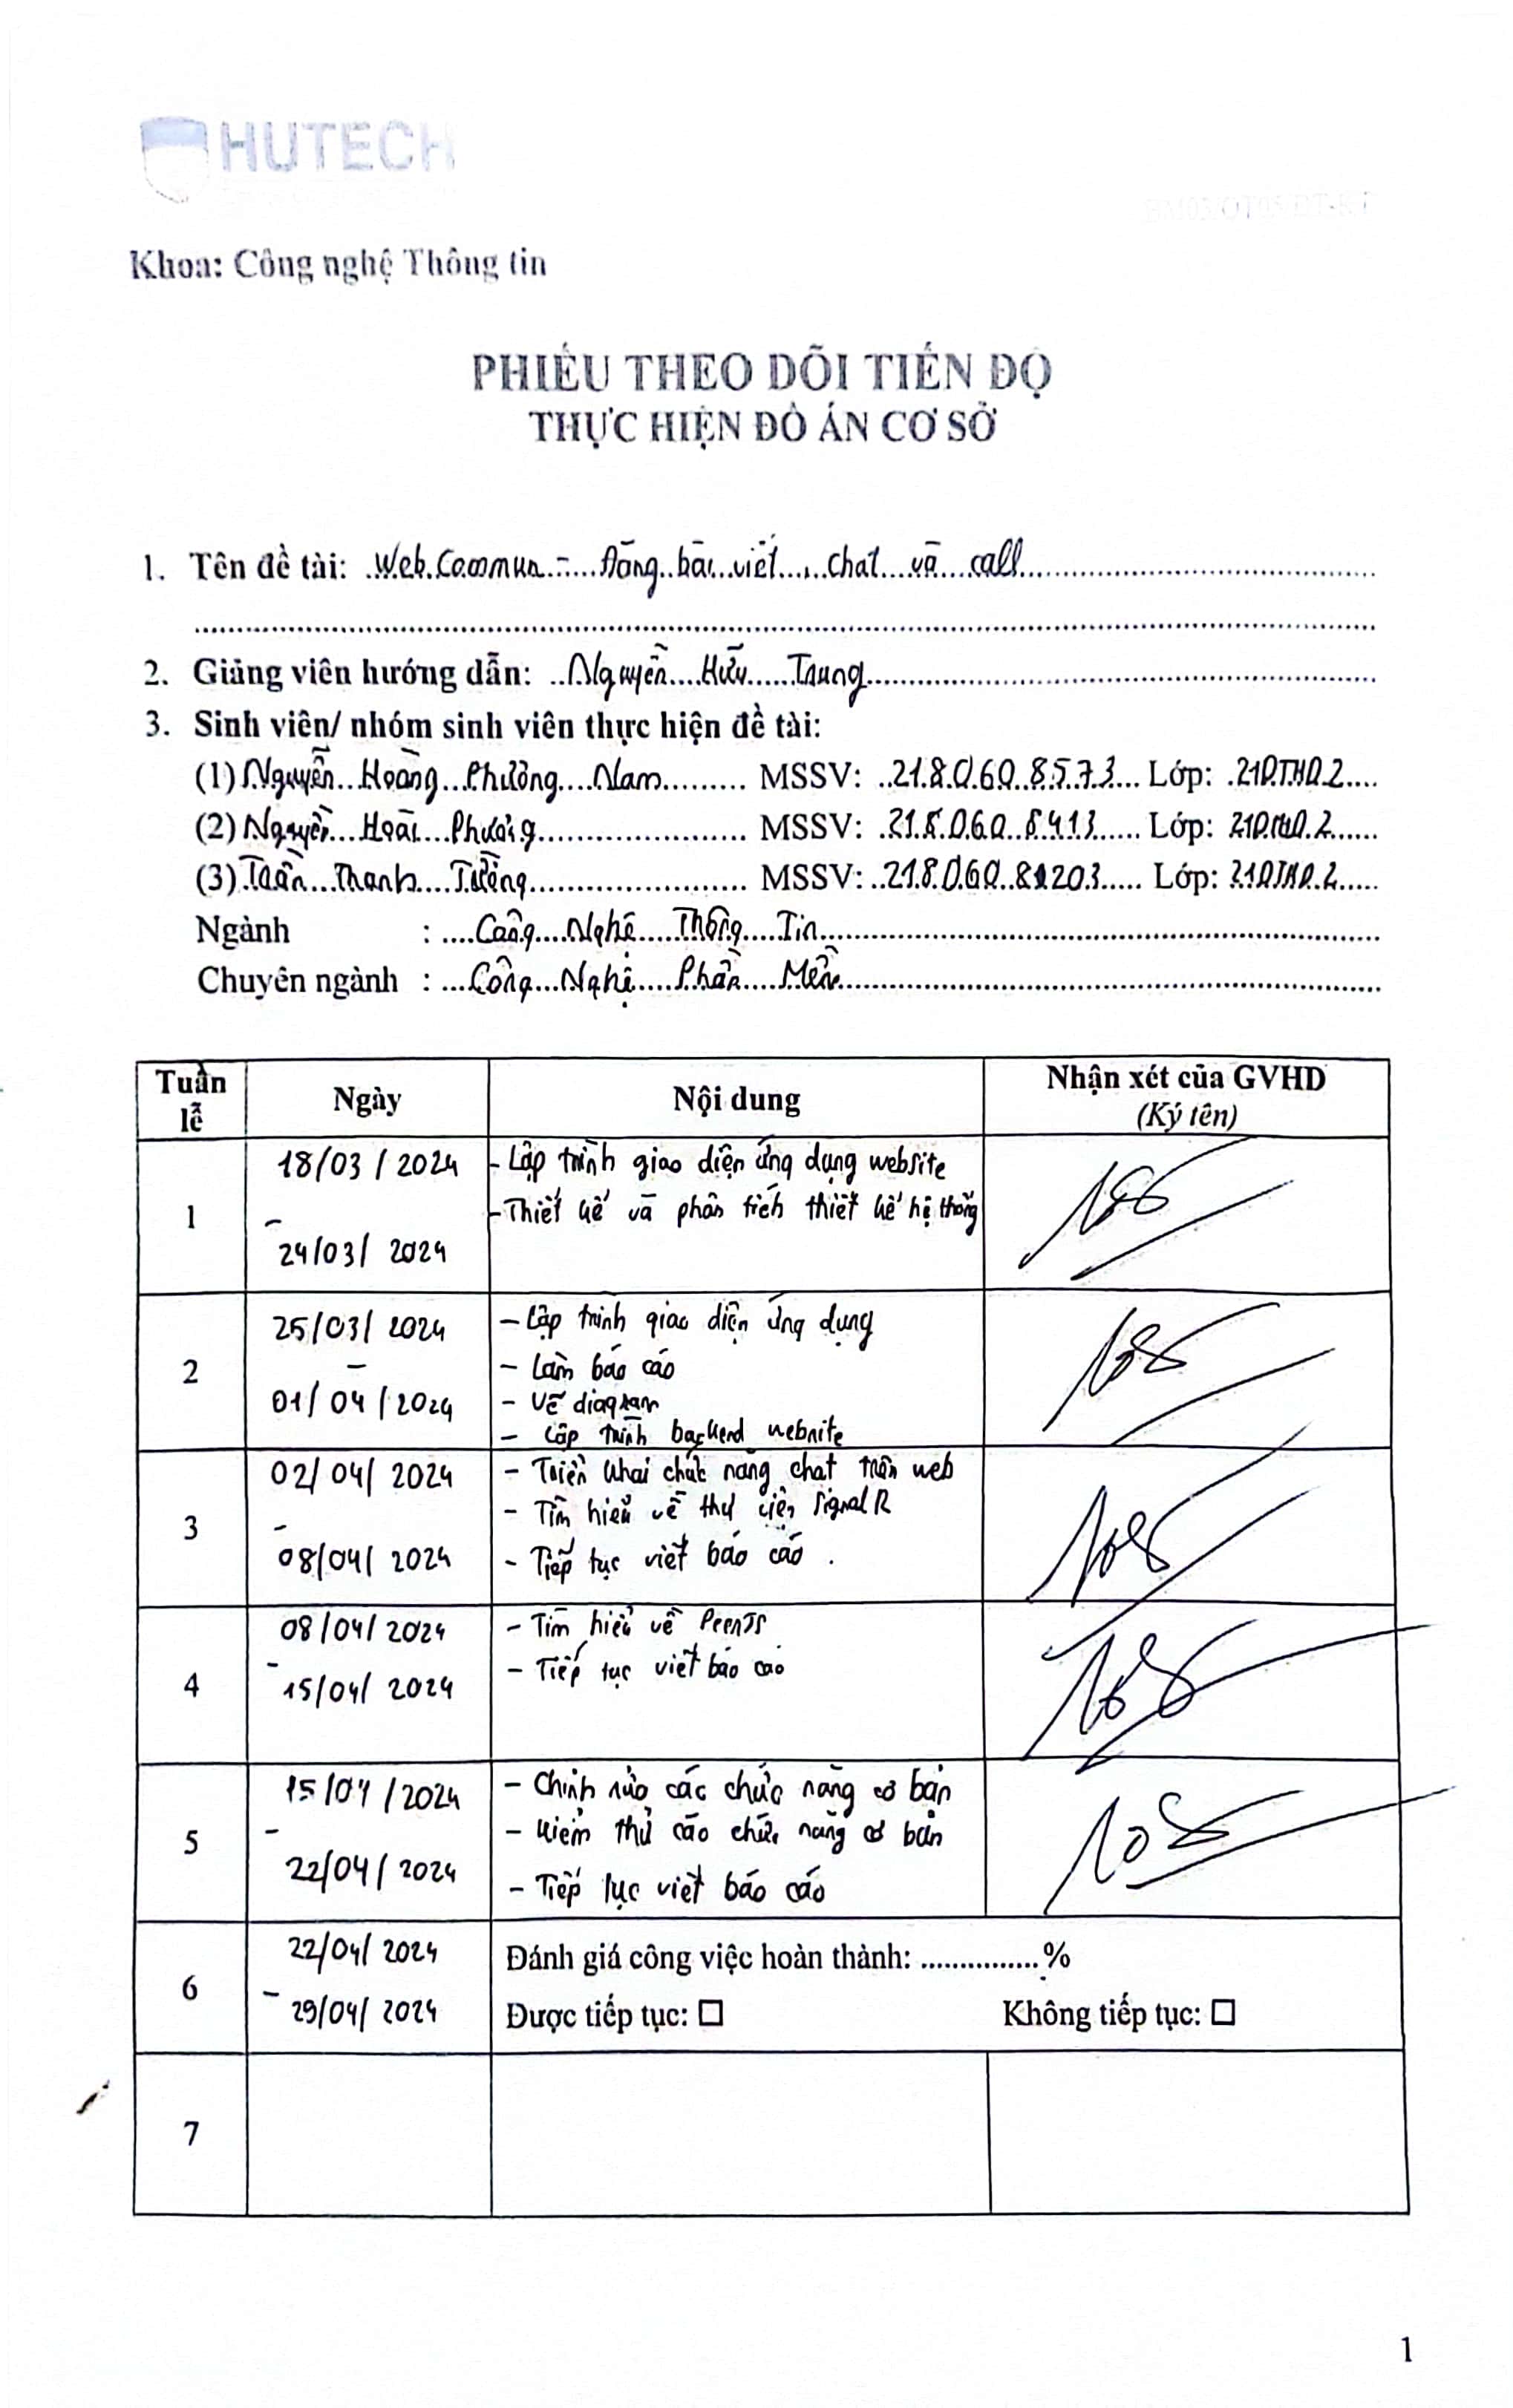 HUTECH
Khoa: Công nghệ Thông tin
PHIẾU THEO DÕI TIẾN ĐỘ
THỰC HIỆN ĐỒ ÁN CƠ SỞ
1. Tên đề tài: Web Commun - Đăng bài viết, chat và call
2. Giảng viên hướng dẫn: Nguyễn Hữu Trung
3. Sinh viên/ nhóm sinh viên thực hiện đề tài:
(1) Nguyễn Hoàng Phương Nam MSSV: 2180608573 Lớp: 21DTHD2
(2) Nguyễn Hoài Phương MSSV: 2180608413 Lớp: 21DTHD2
(3) Trần Thanh Tường MSSV: Lớp: 21DTHD2
Ngành : Công Nghệ Thông Tin
Chuyên ngành : Công Nghệ Phần Mềm
Tuần lễ Ngày Nội dung Nhận xét của GVHD
(Ký tên)
1
18/03/2024
- 24/03/2024
- Lập trình giao diện ứng dụng website
- Thiết kế và phân tích thiết kế hệ thống
2
25/03/2024
- 01/04/2024
- Lập trình giao diện ứng dụng
- Làm báo cáo
- Vẽ diagram
- Lập trình backend website
3
02/04/2024
- 08/04/2024
- Triển khai chức năng chat trên web
- Tìm hiểu về thư viện SignalR
- Tiếp tục viết báo cáo.
4
08/04/2024
- 15/04/2024
- Tìm hiểu về PeerJS
- Tiếp tục viết báo cáo
5
15/04/2024
- 22/04/2024
- Chỉnh sửa các chức năng cơ bản
- Kiểm thử các chức năng cơ bản
- Tiếp tục viết báo cáo
6
22/04/2024
- 29/04/2024
Đánh giá công việc hoàn thành: ...............%
Được tiếp tục: ☐ Không tiếp tục: ☐
7
1